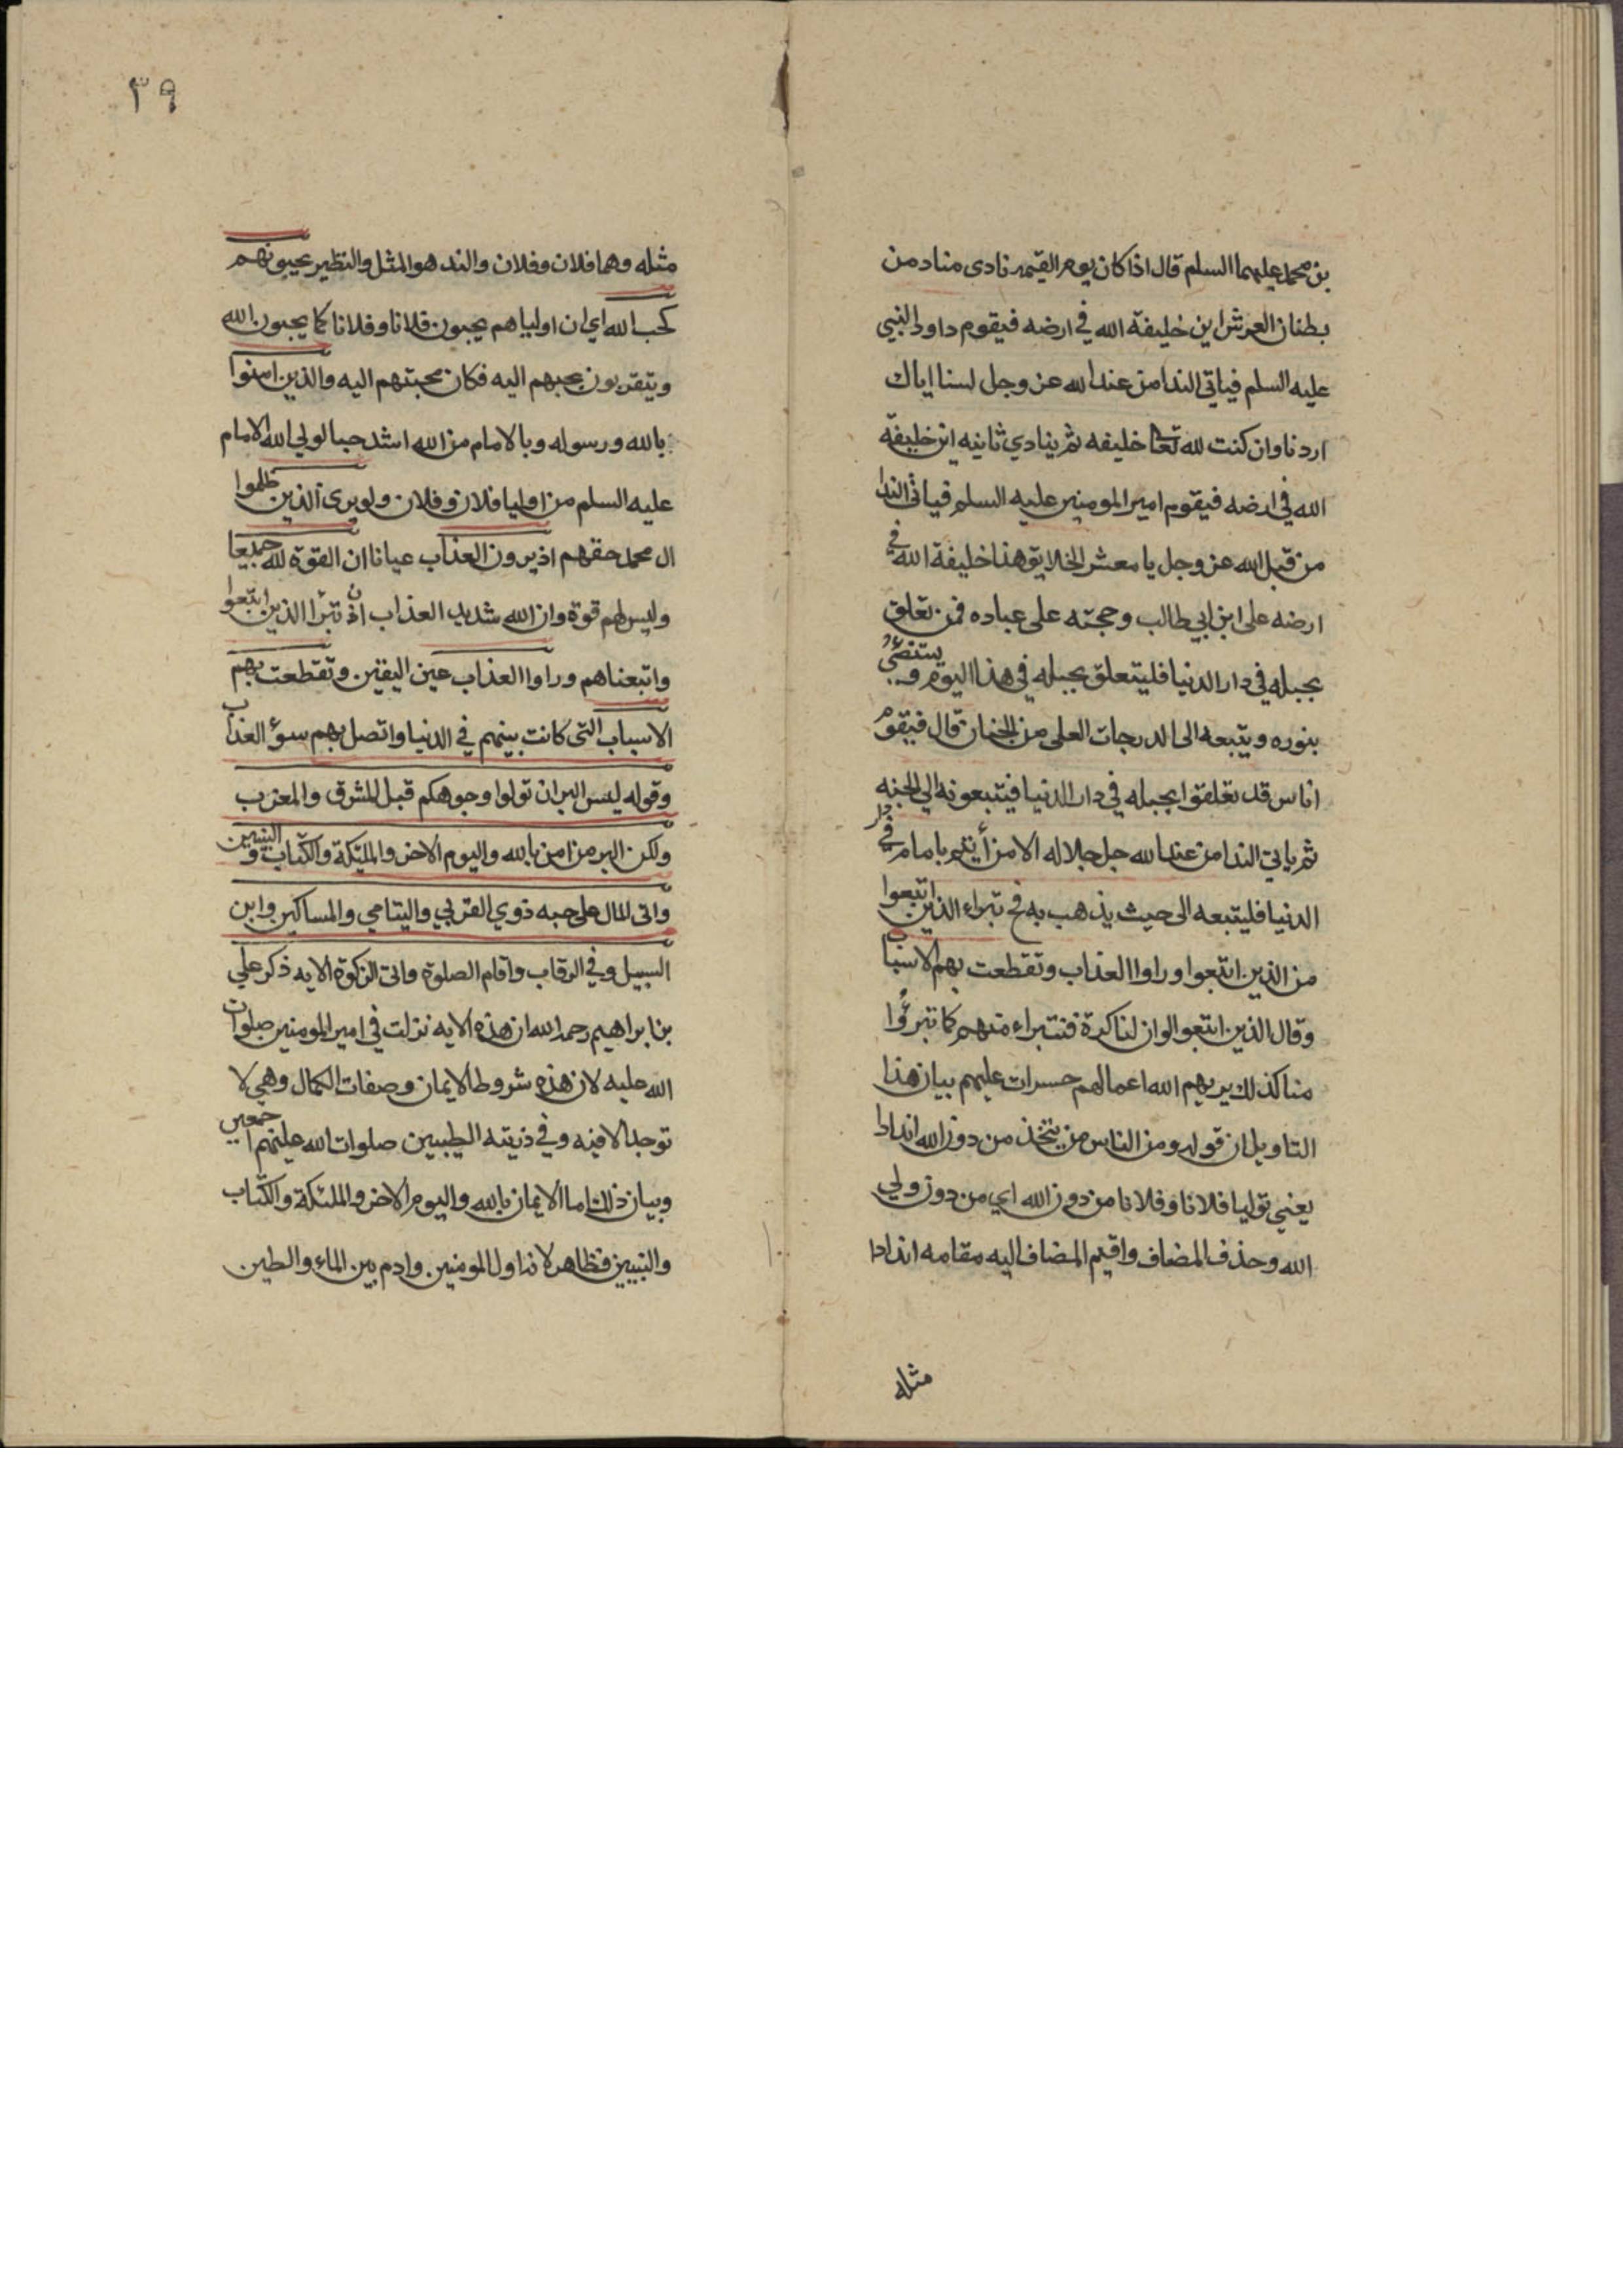 بن محمد عليهما السلم قال اذا كان يوم القيمه نادى مناد من
بطنان العرش اين خليفة الله في ارضه فيقوم داود النبي
عليه السلم فياتي الندا من عند الله عز وجل لسنا اياك
اردنا وان كنت لله تعا خليفه ثم ينادي ثانيه اين خليفة
الله في ارضه فيقوم امير المومنين عليه السلم فياتي الندا
من قبل الله عز وجل يا معشر الخلايق هذا خليفة الله في
ارضه على ابن ابي طالب وحجته على عباده فمن تعلق
بحبله في دار الدنيا فليتعلق بحبله في هذا اليوم و يستضئ
بنوره ويتبعه الى الدرجات العلى من الجنان قال فيقوم
اناس قد تعلقوا بحبله في دار الدنيا فيتبعونه الي الجنه
ثم ياتي الندا من عند الله جل جلاله الا من أيتم بامام في دار
الدنيا فليتبعه الى حيث يذهب به فح تبراء الذين اتبعوا
من الذين اتبعوا وراوا العذاب وتقطعت بهم الاسباب
وقال الذين اتبعوا لوان لنا كرة فنتبراء منهم كما تبرؤا
منا كذلك يريهم الله اعمالهم حسرات عليهم بيان هذا
التاويل ان قوله ومن الناس من يتخذ من دون الله اندادا
يعني توليا فلانا وفلانا من دون الله اي من دون ولي
الله وحذف المضاف واقيم المضاف اليه مقامه اندادا
مثله
٣٩
مثله وهما فلان وفلان والند هو المثل والنظير يحبونهم
كحب الله اي ان اولياهم يحبون فلانا وفلانا كما يحبون الله
ويتقربون بحبهم اليه فكان محبتهم اليه والذين امنوا
بالله ورسوله وبالامام من الله اشد حبا لولي الله الامام
عليه السلم من اوليا فلان وفلان ولو يرى الذين ظلموا
ال محمد حقهم اذ يرون العذاب عيانا ان القوة لله جميعا
وليس لهم قوة وان الله شديد العذاب اذ تبرأ الذين اتبعوا
واتبعناهم وراوا العذاب عين اليقين وتقطعت بهم
الاسباب التى كانت بينهم في الدنيا واتصل بهم سوؤ العذاب
وقوله ليس البر ان تولوا وجوهكم قبل المشرق والمغرب
ولكن البر من امن بالله واليوم الاخر والملئكة والكتاب والنبيين
واتى المال على حبه ذوي القربي واليتامي والمساكين وابن
السبيل وفي الرقاب واقام الصلوة واتى الزكوة الايه ذكر علي
بن ابراهيم رحمه الله ان هذه الايه نزلت في امير المومنين صلوات
الله عليه لان هذه شروط الايمان وصفات الكمال وهي لا
توجد الا فيه وفي ذريته الطيبين صلوات الله عليهم اجمعين
وبيان ذلك اما الايمان بالله واليوم الاخر والملئكة والكتاب
والنبيين فظاهر لانه اول المومنين وادم بين الماء والطين